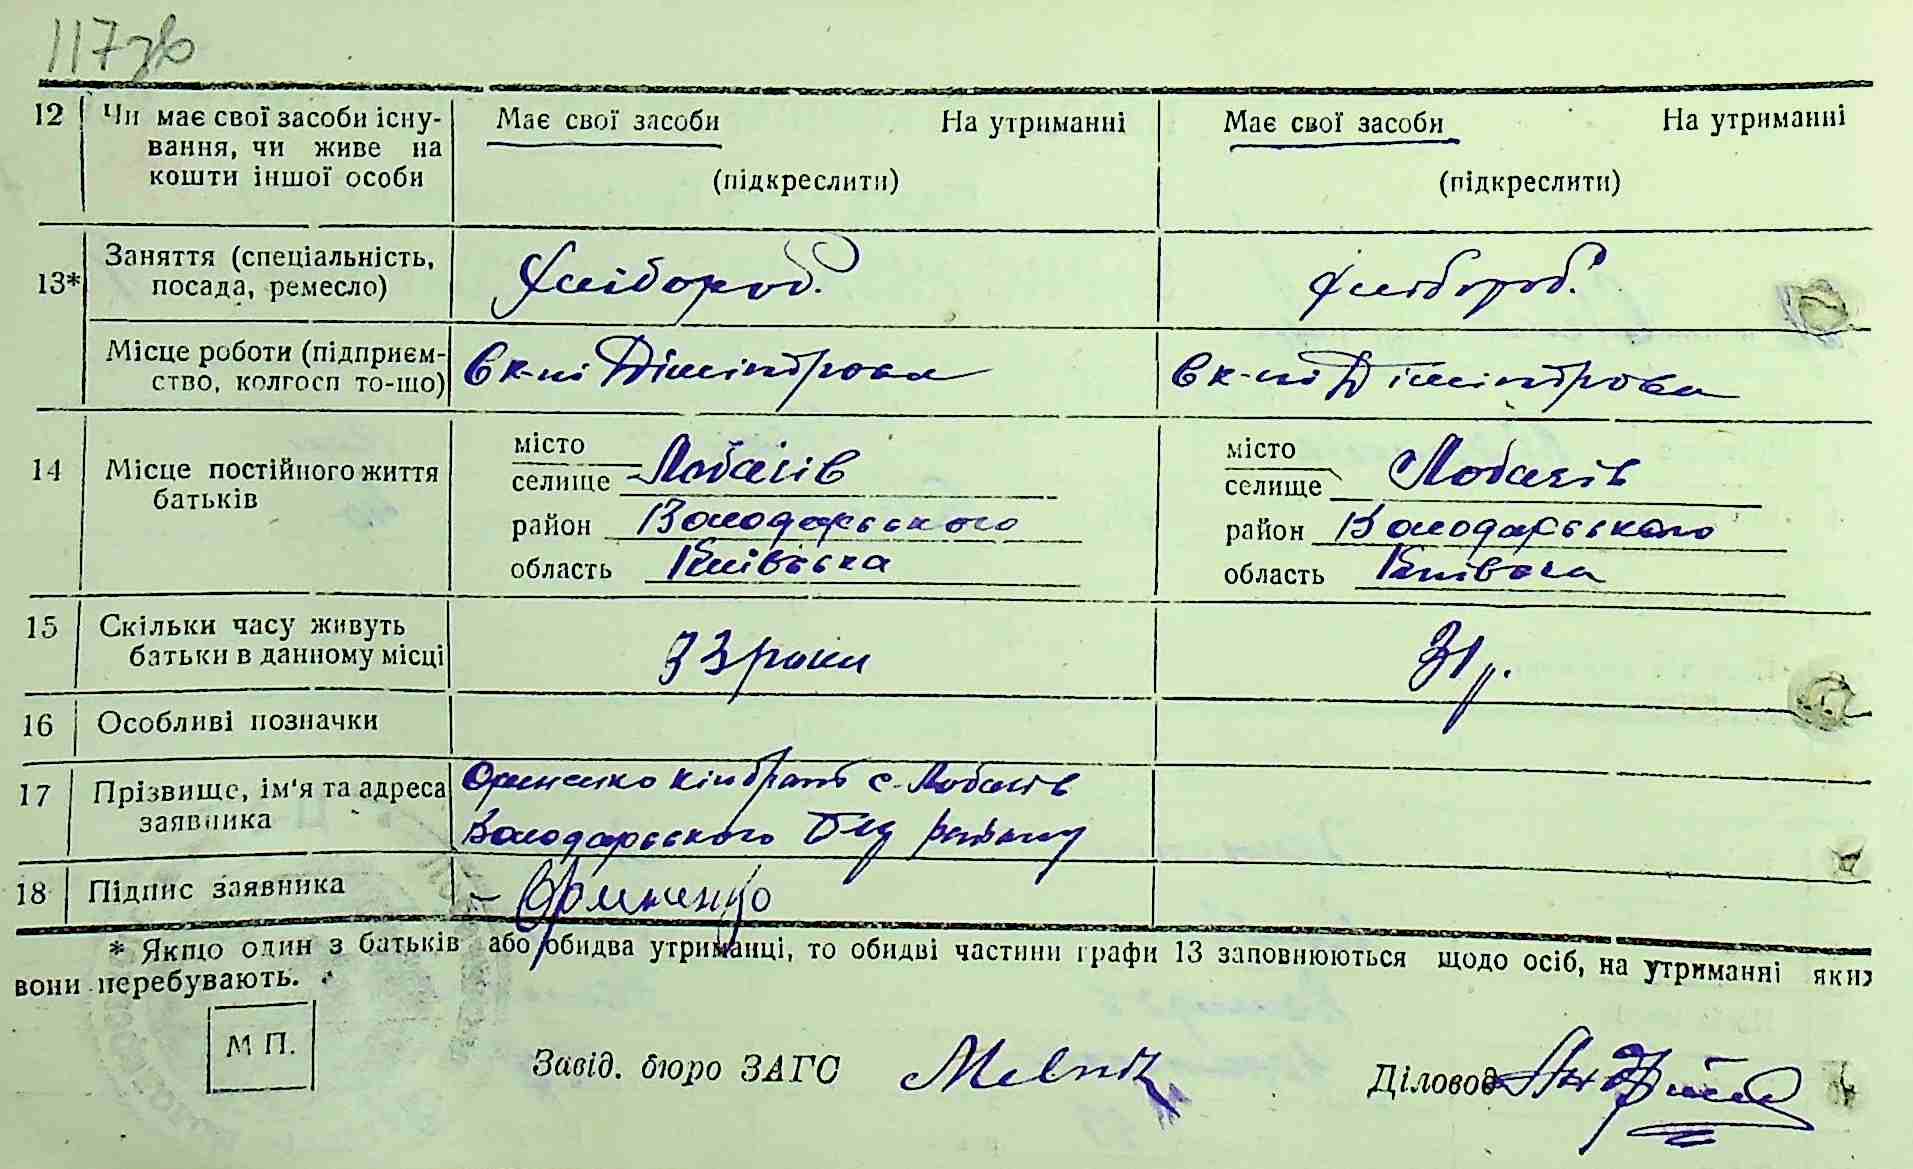 117зв
12 Чи має свої засоби існу-
вання, чи живе на
кошти іншої особи
Має свої засоби На утриманні
(підкреслити)
Має свої засоби На утриманні
(підкреслити)
13* Заняття (спеціальність,
посада, ремесло)
Хлібороб. Хлібороб.
Місце роботи (підприєм-
ство, колгосп то-що)
Вк-пі Дімітрова Вк-пі Дімітрова
14 Місце постійного життя
батьків
місто
селище Лобачів
район Володарського
область Київська
місто
селище Лобачів
район Володарського
область Київська
15 Скільки часу живуть
батьки в данному місці
33 роки 31 р.
16 Особливі позначки
17 Прізвище, ім'я та адреса
заявника
Кіндрат с. Лобачів
Володарського району
18 Підпис заявника
* Якщо один з батьків або обидва утриманці, то обидві частини графи 13 заповнюються щодо осіб, на утриманні яких
вони перебувають.
М П.
Завід. бюро ЗАГС Melnik
Діловод